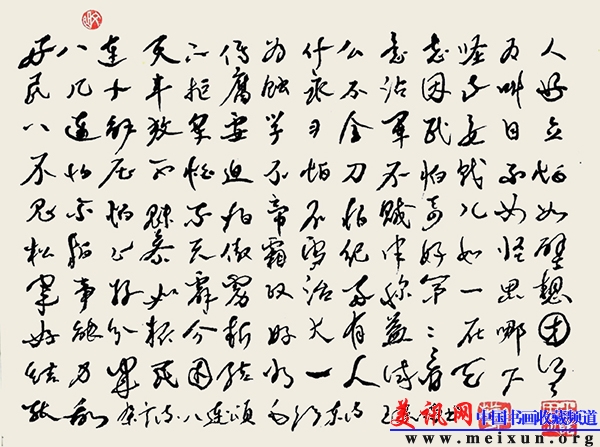 好八连天下传为什么意志坚为人
民几十年拒腐蚀永不沾因此叫好
八连解放军要学习全军民要自立
不怕压不怕迫不怕刀不怕戟不怕
鬼不怕魅不怕帝不怕贼奇儿女如
松柏上参天傲霜雪纪律好如坚壁
军事好如霹雳政治好称第一思想
好能分析分析好大有益益在哪团
结力军民团结如一人试看天下谁
能敌 杂言诗八连颂 毛泽东诗
美讯网 中国书画收藏频道
www.meixun.org